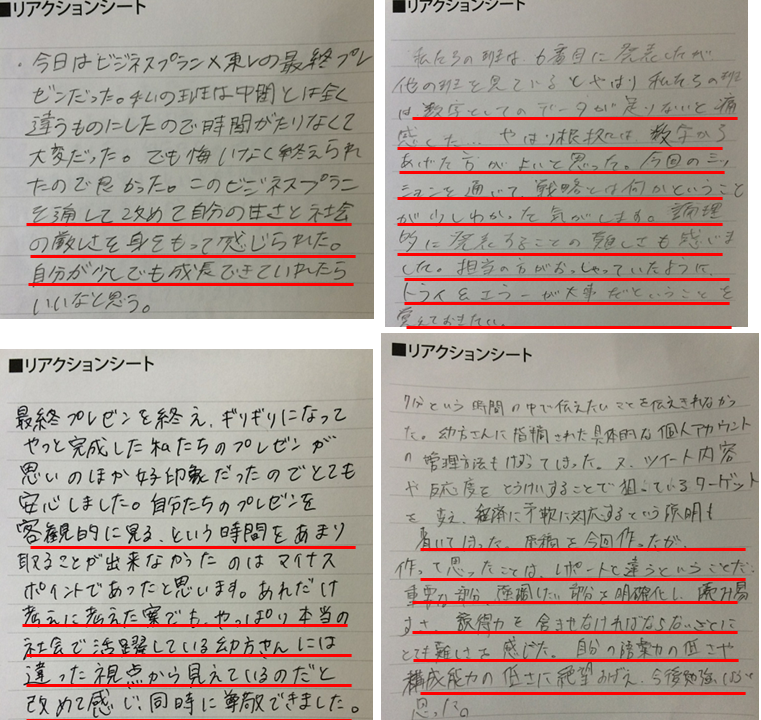 ■リアクションシート
・今日はビジネスプラン×東レの最終プレ
ゼンだった。私の班は中間とは全く
違うものにしたので時間がたりなくて
大変だった。でも悔いなく終えられ
たので良かった。このビジネスプラン
を通して改めて自分の甘さと社会
の厳しさを身をもって感じられた。
自分が少しでも成長できていれたら
いいなと思う。
■リアクションシート
私たちの班は、6番目に発表したが
他の班を見ているとやはり私たちの班
は数字としてのデータが足りないと痛
感した…。やはり根拠には、数字から
あげた方がよいと思った。今回のミッ
ションを通じて、戦略とは何かということ
が少しわかった気がします。論理
的に発表することの難しさも感じま
した。担当の方がおっしゃっていたように、
トライ&エラーが大事だということを
覚えておきたい。
■リアクションシート
最終プレゼンを終え、ギリギリになって
やっと完成した私たちのプレゼンが
思いのほか好印象だったのでとても
安心しました。自分たちのプレゼンを
客観的に見る、という時間をあまり
取ることが出来なかったのはマイナス
ポイントであったと思います。あれだけ
考えに考えた案でも、やっぱり本当の
社会で活躍している幼方さんには
違った視点から見えているのだと
改めて感じ、同時に尊敬できました。
■リアクションシート
7分という時間の中で伝えたいことを伝えきれなかっ
た。幼方さんに指摘された具体的な個人アカウント
の管理方法もけずってしまった。又、ツイート内容
や反応度をとうけいすることで狙っているターゲット
を変え、経済に柔軟に対応するという説明も
省いてしまった。原稿を今回作ったが、
作って思ったことは、レポートと違うということだ。
重要な部分、強調したい部分を明確化し、読み易
すさ、説得力を含ませなければならないことに
とても難しさを感じた。自分の語彙力の低さや
構成能力の低さに絶望をおぼえ、今後勉強しようと
思った。